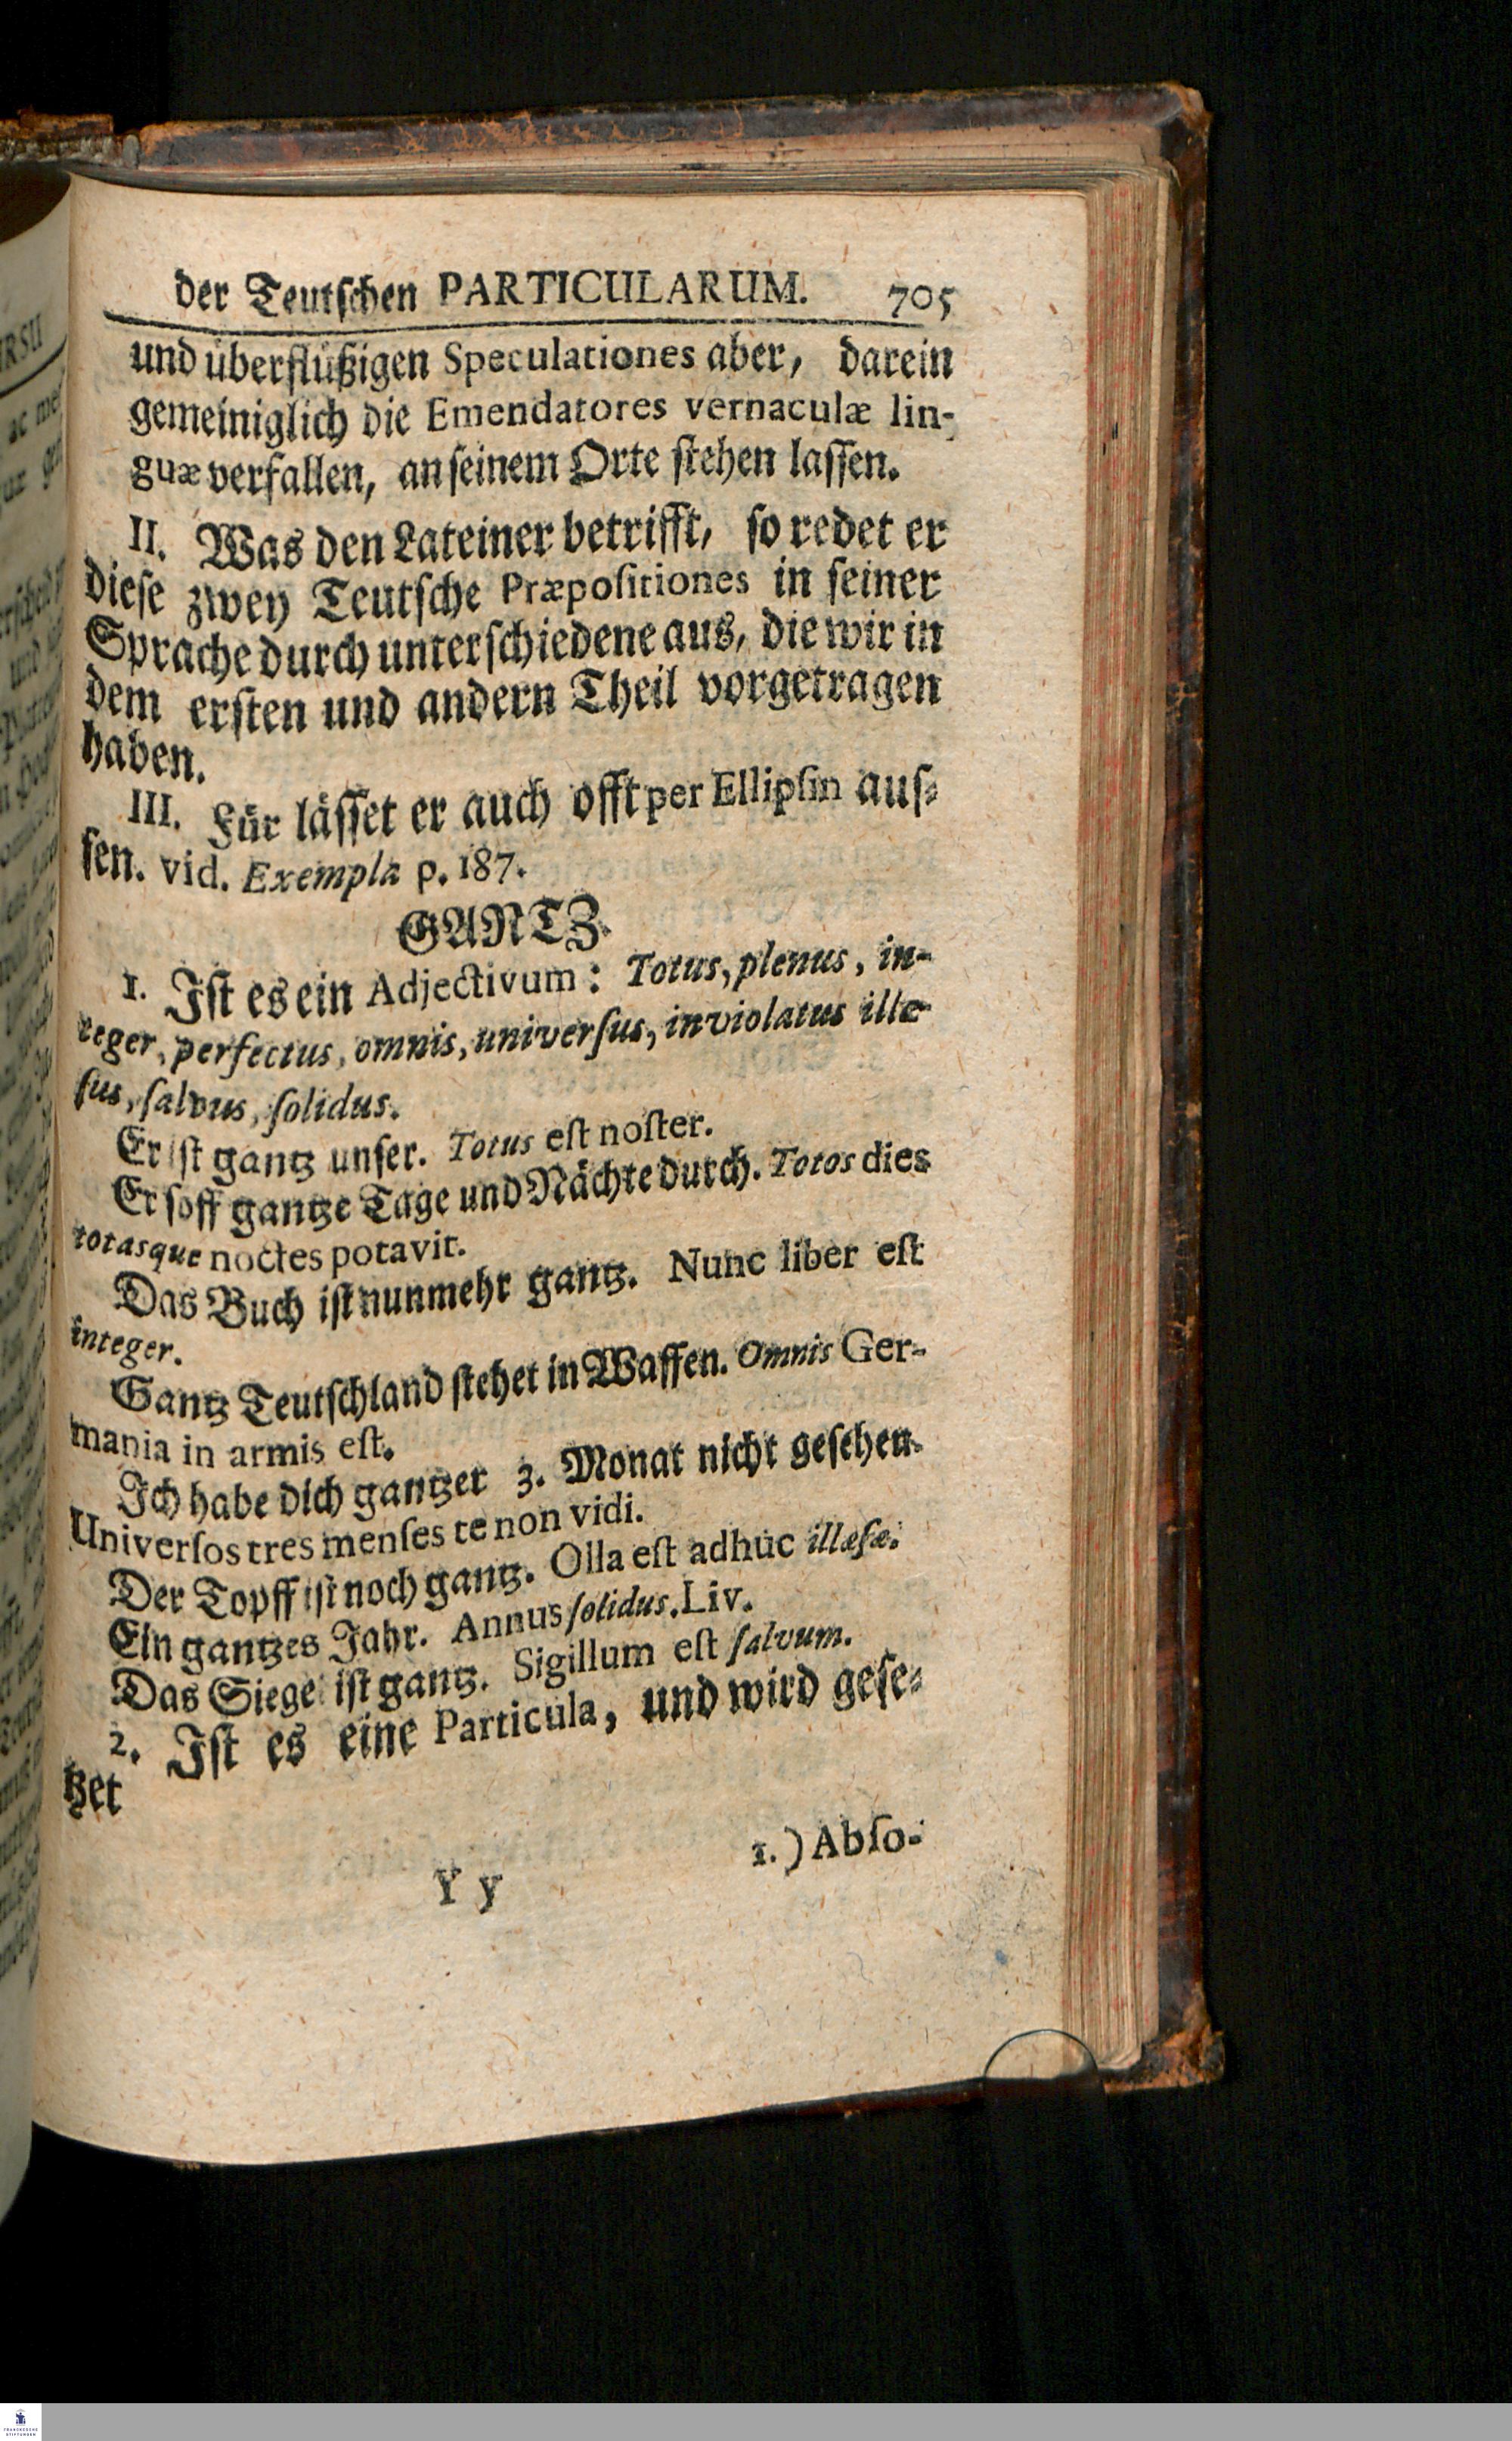 der Teutschen PARTICULARUM. 705
und überflüßigen Speculationes aber, darein
gemeiniglich die Emendatores vernaculæ lin-
guæ verfallen, an seinem Orte stehen lassen.
II. Was den Lateiner betrifft, so redet er
diese zwey Teutsche Præpoſitiones in seiner
Sprache durch unterschiedene aus, die wir in
dem ersten und andern Theil vorgetragen
haben.
III. Für lässet er auch offt per Ellipſin aus-
sen. vid. Exempla p. 187.
GANTZ.
1. Ist es ein Adjectivum: Totus, plenus, in-
teger, perfectus, omnis, univerſus, inviolatus illæ-
ſus, ſalvus, ſolidus.
Er ist gantz unser. Totus eſt noſter.
Er soff gantze Tage und Nächte durch. Totos dies
totasque noctes potavit.
Das Buch ist nunmehr gantz. Nunc liber eſt
integer.
Gantz Teutschland stehet in Waffen. Omnis Ger-
mania in armis eſt.
Ich habe dich gantzer 3. Monat nicht gesehen.
Univerſos tres menſes te non vidi.
Der Topff ist noch gantz. Olla eſt adhuc illæſæ.
Ein gantzes Jahr. Annus ſolidus. Liv.
Das Siegel ist gantz. Sigillum eſt ſalvum.
2. Ist es eine Particula, und wird gese-
tzet
1.) Abſo-
Y y